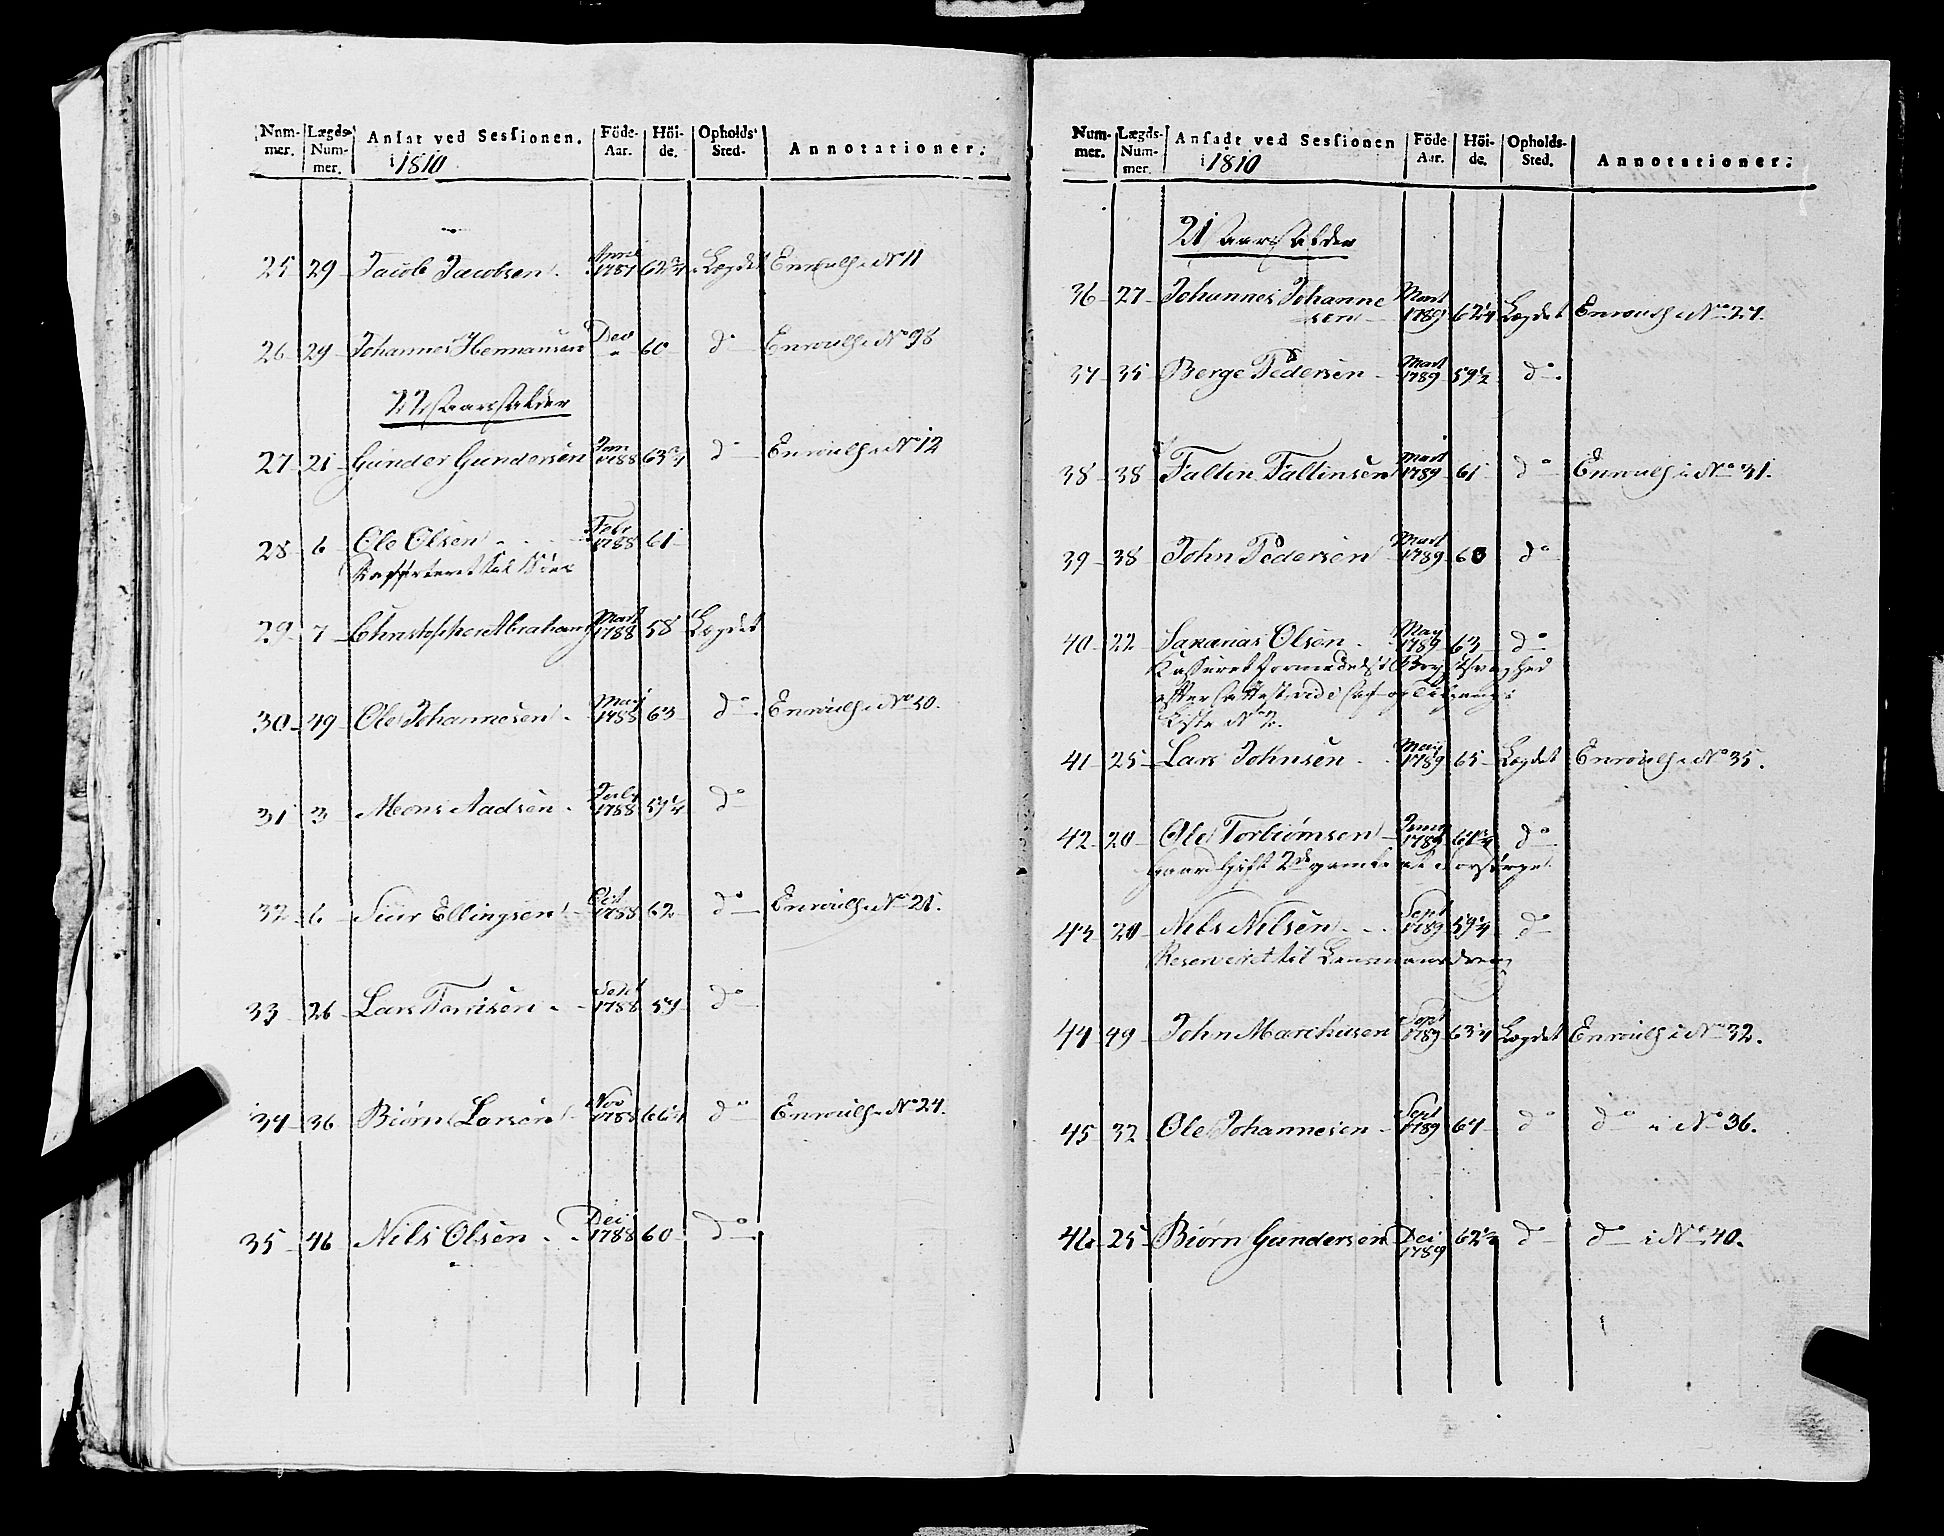 Num-mer. Lægds-Num-mer. Ansat ved Sessionen. i 1810 Föde-Aar. Höi-de. Opholds-Sted. Annotationer.
25 29 Jacob Jacobsen April 1787 62 3/4 Lægdet Enroull: i No 11
26 29 Johannes Hermansen Dec " 60 do Enroull: i No 98
22 Aars Alder
27 21 Gunder Gundersen Jan 1788 63 do Enroull: i No 12
28 6 Ole Olsen Febr 1788 61
29 7 Christopher Abrahams Mart 1788 58 Lægdet
30 49 Ole Johannesen May 1788 63 do Enroull: i No
31 3 Mons Aadsen July 1788 do
32 6 Siur Ellingsen Oct 1788 62 do Enroull: i No 21.
33 26 Lars Sept 1788 do
34 36 Biørn Larsen Nov 1788 do Enroull: i No 24.
35 46 Nils Olsen Dec 1788 60 do
Num-mer. Lægds-Num-mer. Ansadt ved Sessionen i 1810 Föde Aar. Höi-de. Opholds-Sted. Annotationer.
21 Aars Alder
36 27 Johannes Johanne
sen Mart 1789 62 1/4 Lægdet Enroull: i No 27.
37 35 Berge Pedersen Mart 1789 59 1/2 do
38 38 Faltin Faltinsen Mart 1789 61 do Enroull: i No 31.
39 38 John Pedersen Mart 1789 60 do
40 22 Sakarias Olsen May 1789 63 do
Kasseret formedelst Brystsvaghed
Liste No 2.
41 25 Lars Johnsen May 1789 65 Lægdet Enroull: i No 35.
42 20 Ole Torbiørnsen 1789 do
43 20 Nils Nilsen Sept 1789 do
Reserveret til Lensmansdreng
44 49 John Marchusen Sept 1789 63 Lægdet Enroull: i No 32.
45 32 Ole Johannesen Sept 1789 do do i No 36.
46 25 Biørn Gundersen Dec 1789 62 1/2 do do i No 40.